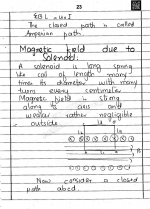 23
ΣBL = μ₀I
The closed path is called
Amperian path.
Magnetic field due to
Solenoid:
A solenoid is long spring
like coil of length many
time its diameter with many
turns every centimeter.
Magnetic field is strong
along its axis and
weaker rather negligible
outside.
Now consider a closed
path abcd.